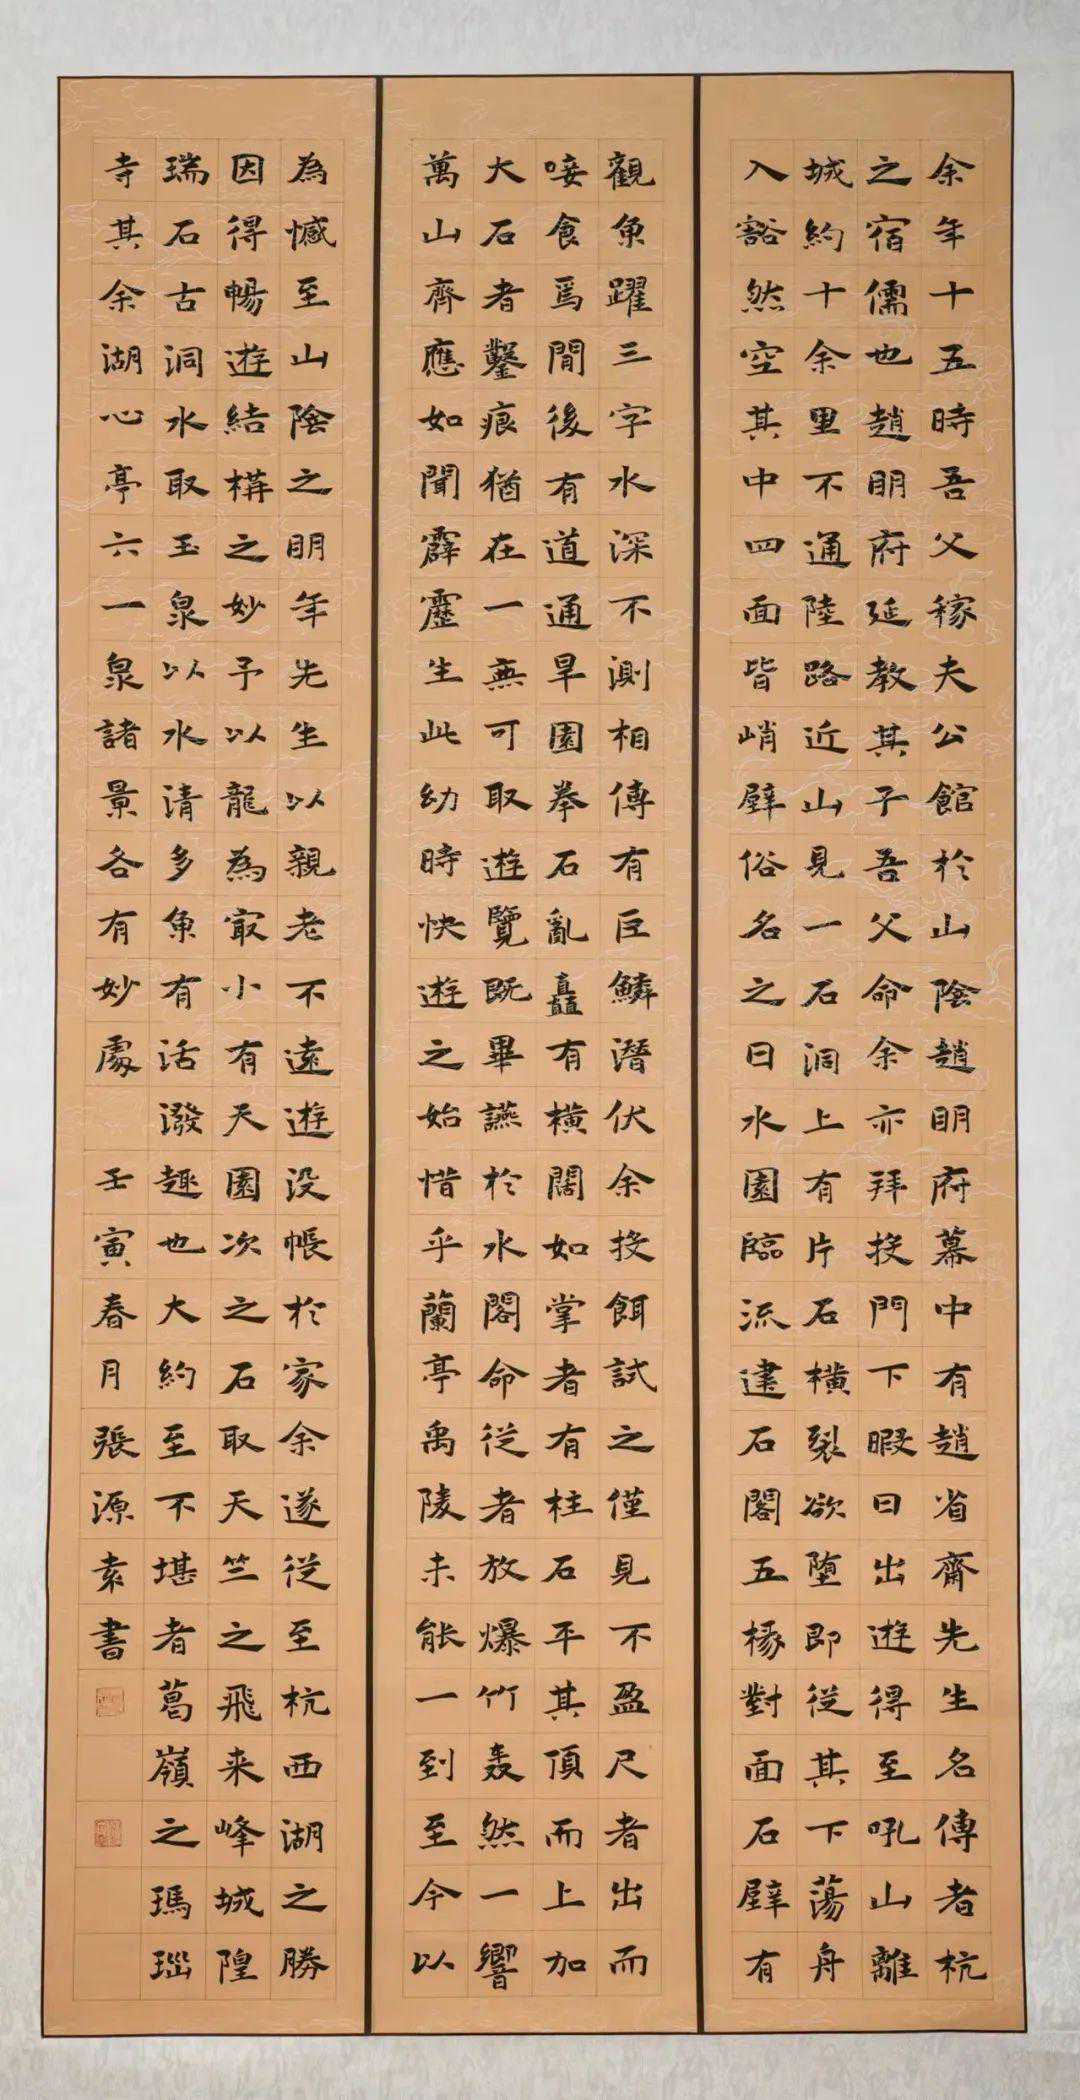 余年十五時吾父稼夫公館於山陰趙明府幕中有趙省齋先生名傳者杭
之宿儒也趙明府延教其子吾父命余亦拜投門下暇日出遊得至吼山離
城約十余里不通陸路近山見一石洞上有片石橫裂欲墮即從其下蕩舟
入豁然空其中四面皆峭壁俗名之曰水園臨流建石閣五椽對面石壁有
觀魚躍三字水深不測相傳有巨鱗潛伏余投餌試之僅見不盈尺者出而
唼食焉閣後有道通旱園拳石亂矗有橫闊如掌者有柱石平其頂而上加
大石者鑿痕猶在一無可取遊覽既畢讌於水閣命從者放爆竹轟然一響
萬山齊應如聞霹靂生此幼時快遊之始惜乎蘭亭禹陵未能一到至今以
為憾至山陰之明年先生以親老不遠遊設帳於家余遂從至杭西湖之勝
因得暢遊結構之妙予以龍為最小有天園次之石取天竺之飛来峰城隍
瑞石古洞水取玉泉以水清多魚有活潑趣也大約至不堪者葛嶺之瑪瑙
寺其余湖心亭六一泉諸景各有妙處
壬寅春月張源素書